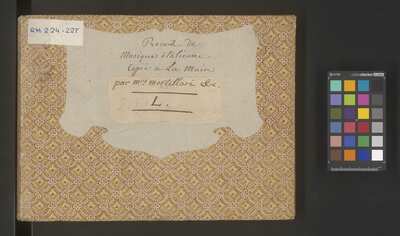 RM 224-225
Recueil De
Musique italienne
Copié a La Main
par mr mortellari &c.
L.